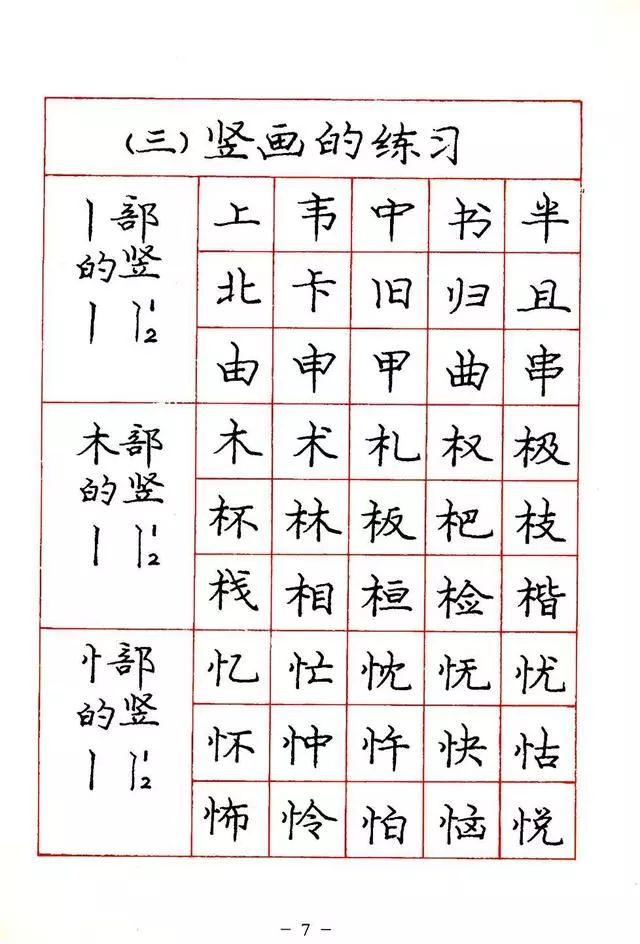 (三)竖画的练习
丨部
的竖
丨 丨12
上韦中书半
北卡旧归且
由申甲曲串
木部
的竖
丨 丨12
木术札权极
杯林板杷枝
栈相桓检楷
忄部
的竖
丨 丨12
忆忙忱怃忧
怀忡忤快怙
怖怜怕恼悦
- 7 -